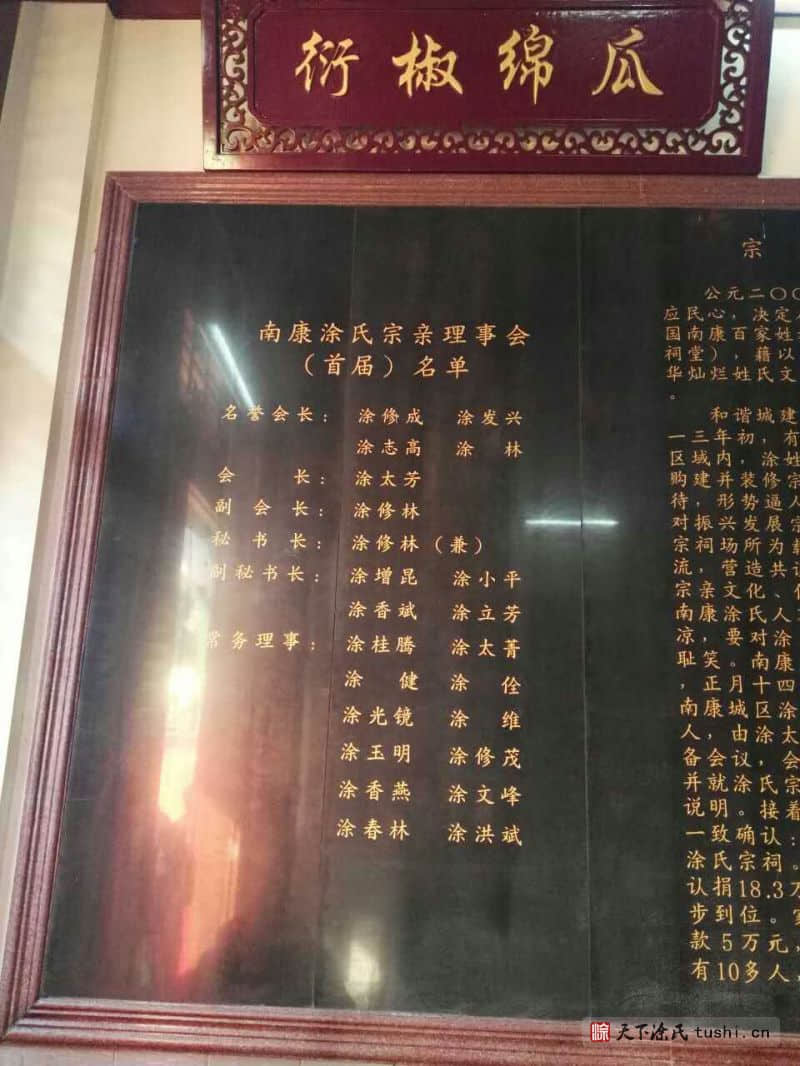 衍椒绵瓜
南康涂氏宗亲理事会
（首届）名单
名誉会长：涂修成 涂发兴
涂志高 涂林
会长：涂太芳
副会长：涂修林
秘书长：涂修林（兼）
副秘书长：涂增昆 涂小平
涂香斌 涂立芳
常务理事：涂桂腾 涂太菁
涂健 涂佺
涂光镜 涂维
涂玉明 涂修茂
涂香燕 涂文峰
涂春林 涂洪斌
宗
公元二〇〇
应民心，决定
国南康百家姓
祠堂），藉以
华灿烂姓氏文
。
和谐城建
一三年初，有
区域内，涂姓
购建并装修宗
待，形势逼人
对振兴发展宗
宗祠场所为
流，营造共
宗亲文化、
南康涂氏人
凉，要对涂
耻笑。南康
，正月十四
南康城区涂
人，由涂太
备会议，会
并就涂氏宗
说明。接着
一致确认：
涂氏宗祠。
认捐18.3万
步到位。
款5万元，
有10多人，
涂 天下涂氏 tushi.cn